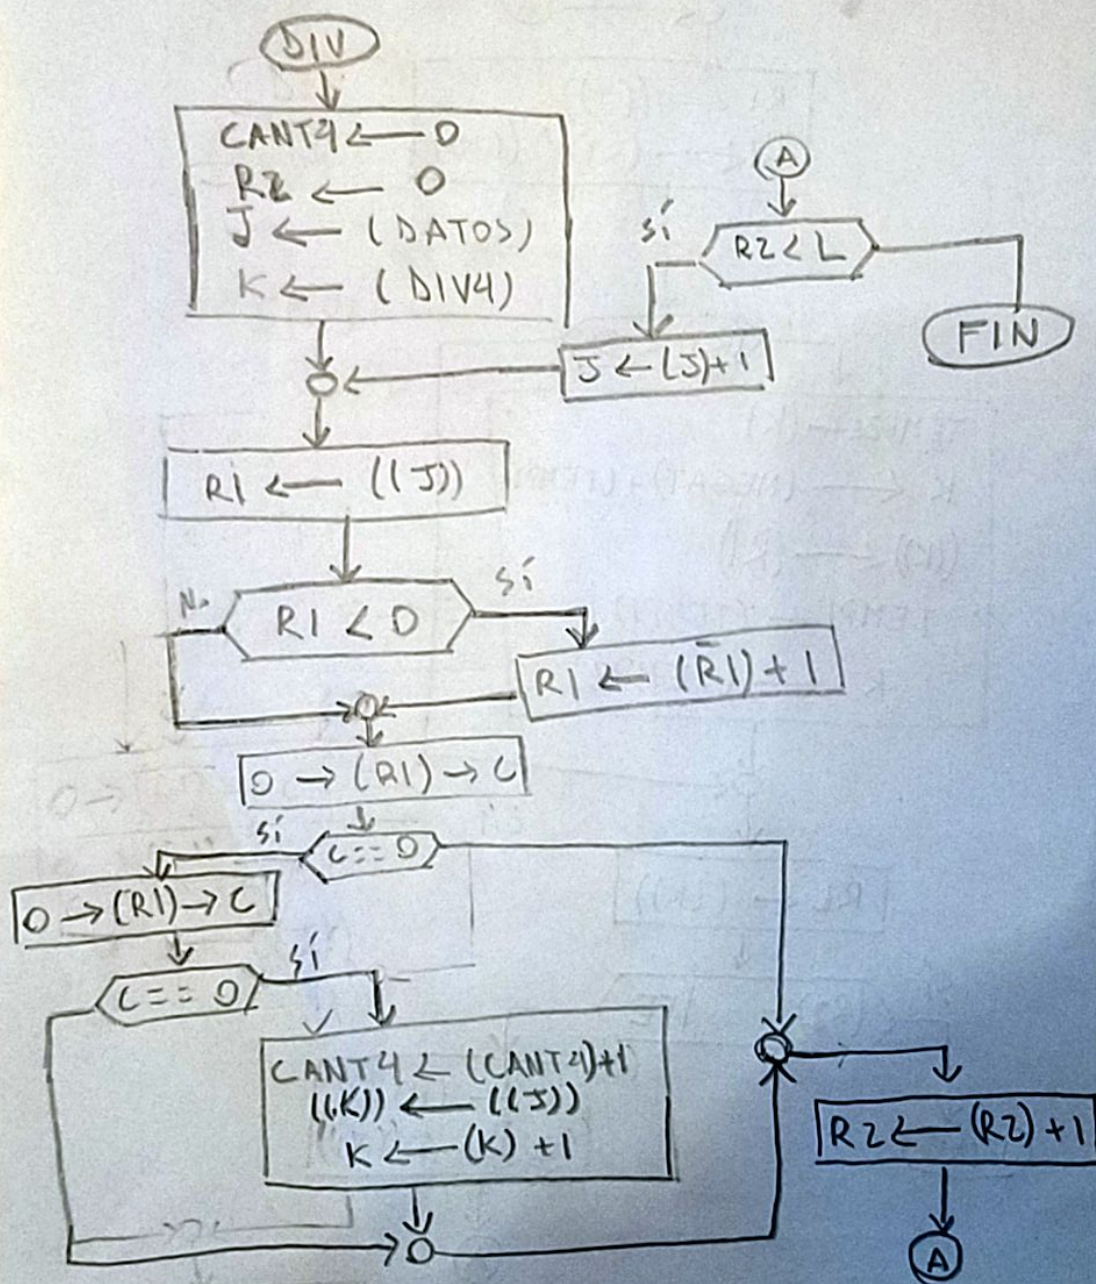 DIV
CANT4 ← 0
R2 ← 0
J ← (DATOS)
K ← (DIV4)
A
sí
R2 < L
FIN
J ← (J)+1
R1 ← ((J))
No
R1 < 0
sí
R1 ← (R̄1) + 1
0 → (R1) → C
sí
C == 0
0 → (R1) → C
C == 0
sí
CANT4 ← (CANT4)+1
((K)) ← ((J))
K ← (K) + 1
R2 ← (R2) + 1
A